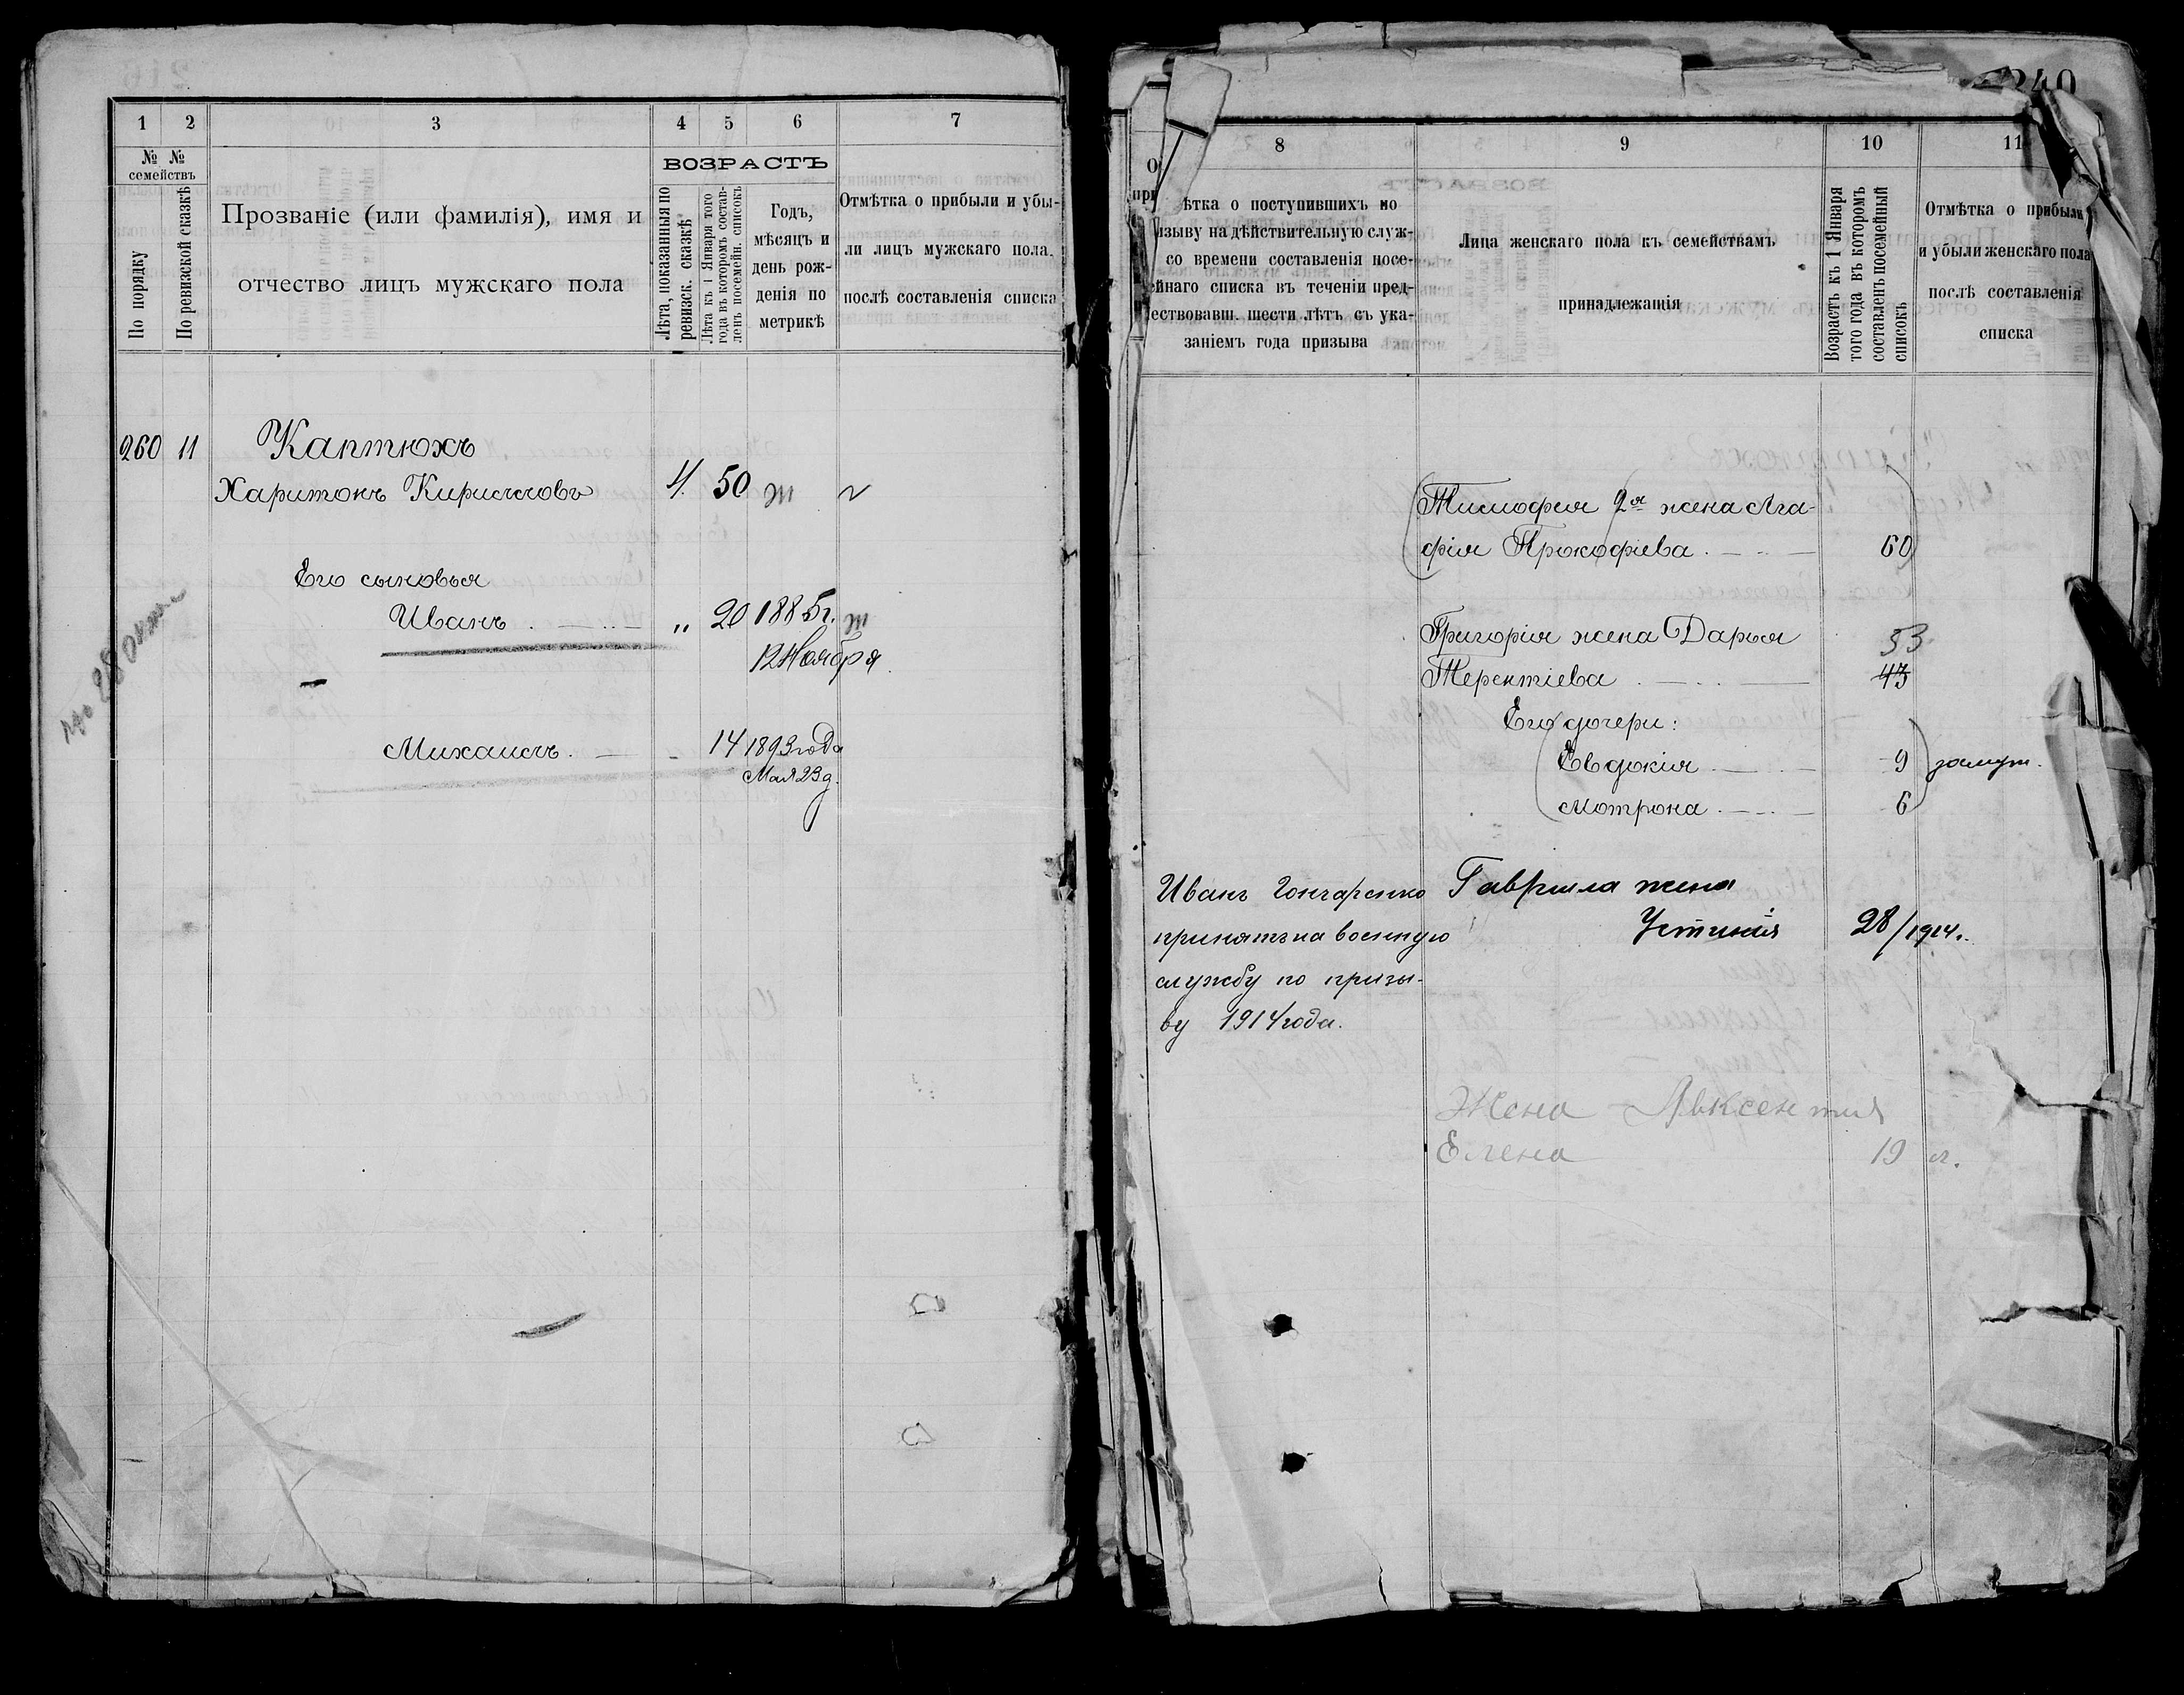 1 2 3 4 5 6 7
№ № семействъ
По порядку
По ревизской сказкѣ
Прозваніе (или фамилія), имя и
отчество лицъ мужскаго пола
ВОЗРАСТЪ
Лѣта, показанныя по
ревизск. сказкѣ
Лѣта къ 1 Января того
года въ которомъ состав-
ленъ посемейн. списокъ
Годъ,
мѣсяцъ и
день рож-
денія по
метрикѣ
Отмѣтка о прибыли и убы-
ли лицъ мужскаго пола,
послѣ составленія списка
260 11 Каптюхъ
Харитонъ Кирилловъ 4. 50
Его сыновья
Иванъ „ 20 1885г.
12 Ноября
Михаилъ 14 1893 года
Мая 23 д.
240
8 9 10 11
ѣтка о поступившихъ по
изыву на дѣйствительную служ-
со времени составленія посе-
ейнаго списка въ теченіи пред-
ествовавш. шести лѣтъ съ ука-
заніемъ года призыва
Лица женскаго пола къ семействамъ
принадлежащія
Возрастъ къ 1 Января
того года въ которомъ
составленъ посемейный
списокъ
Отмѣтка о прибыли
и убыли женскаго пола
послѣ составленія
списка
(Тимофея 2я жена Ага-
фія Прокофіева 60)
Григорія жена Дарья 53
Терентіева 43
Его дочери:
Евдокія 9
Мотрона 6
замуж.
Иванъ Гончаренко
принятъ на военную
службу по призы-
ву 1914 года.
Гаврила жена
Устинія 28/1914.
Жена Авксентія
Елена 19 л.